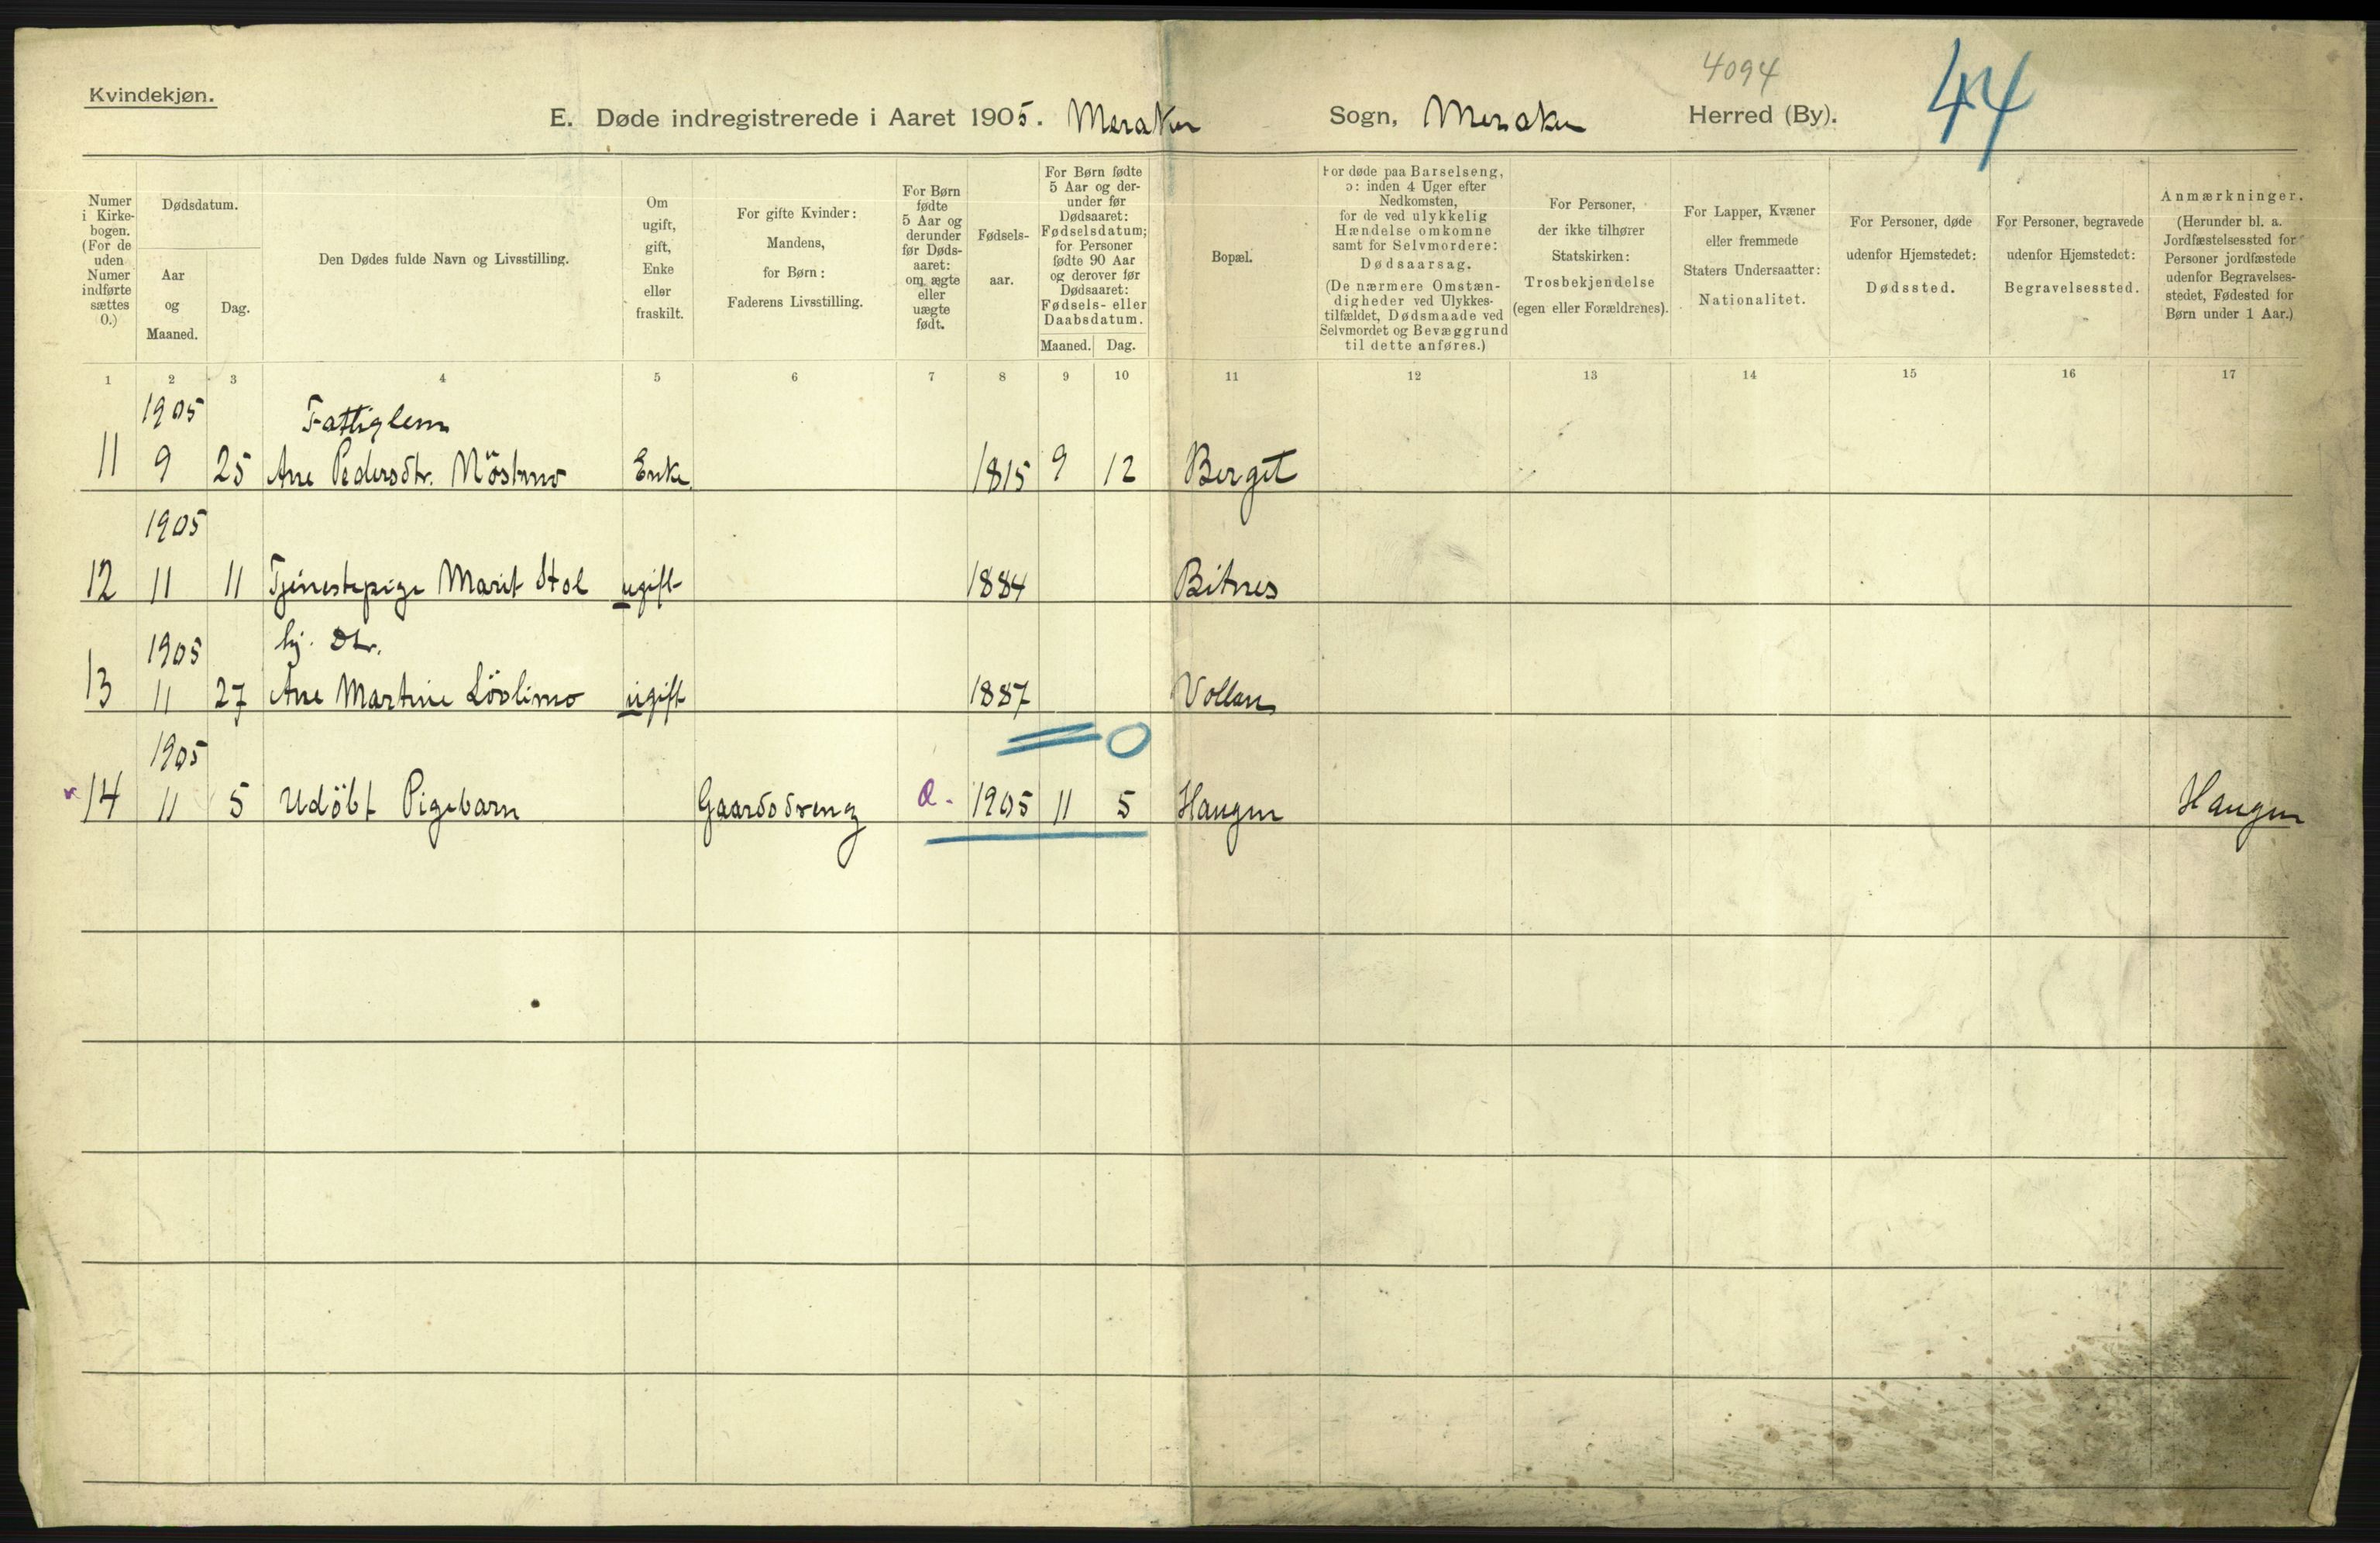 4094
44
Kvindekjøn.
E. Døde indregistrerede i Aaret 1905. Meraker Sogn, Meraker Herred (By).
Numer i Kirkebogen. (For de uden Numer indførte sættes 0.)
Dødsdatum.
Aar og Maaned.
Dag.
Den Dødes fulde Navn og Livsstilling.
Om ugift, gift, Enke eller fraskilt.
For gifte Kvinder: Mandens, for Børn: Faderens Livsstilling.
For Børn fødte 5 Aar og derunder før Dødsaaret: om ægte eller uægte født.
Fødselsaar.
For Børn fødte 5 Aar og derunder før Dødsaaret: Fødselsdatum; for Personer fødte 90 Aar og derover før Dødsaaret: Fødsels- eller Daabsdatum.
Maaned. Dag.
Bopæl.
For døde paa Barselseng, ɔ: inden 4 Uger efter Nedkomsten, for de ved ulykkelig Hændelse omkomne samt for Selvmordere: Dødsaarsag. (De nærmere Omstændigheder ved Ulykkestilfældet, Dødsmaade ved Selvmordet og Bevæggrund til dette anføres.)
For Personer, der ikke tilhører Statskirken: Trosbekjendelse (egen eller Forældrenes).
For Lapper, Kvæner eller fremmede Staters Undersaatter: Nationalitet.
For Personer, døde udenfor Hjemstedet: Dødssted.
For Personer, begravede udenfor Hjemstedet: Begravelsessted.
Anmærkninger. (Herunder bl. a. Jordfæstelsessted for Personer jordfæstede udenfor Begravelsesstedet, Fødested for Børn under 1 Aar.)
1 2 3 4 5 6 7 8 9 10 11 12 13 14 15 16 17
1905 Fattiglem
11 9 25 Ane Pedersdtr. Möstmo Enke 1815 9 12 Berget
1905
12 11 11 Tjenestepige Marit Stol ugift 1884 Bitnes
1905 hj. dtr.
13 11 27 Ane Martine Lövlimo ugift 1887 Vollan
1905 0
14 11 5 Udöbt Pigebarn Gaardsdreng 1905 11 5 Haugen Haugen